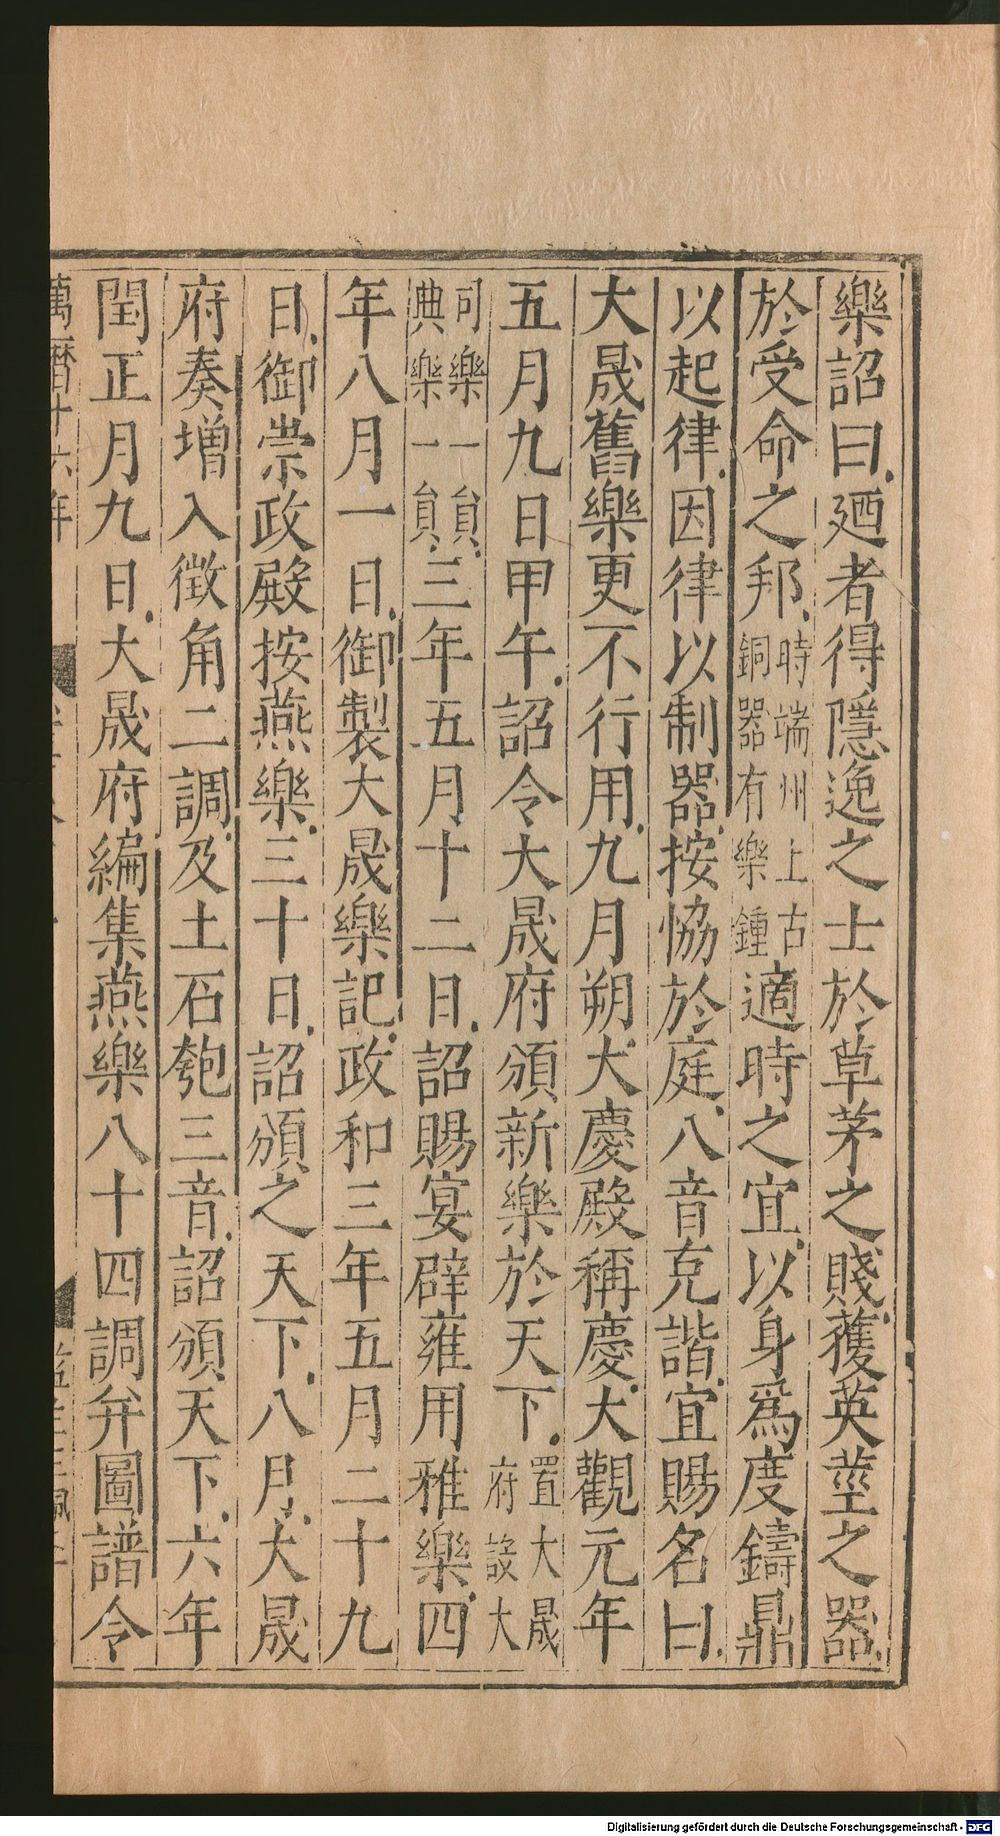 樂詔曰廼者得隱逸之士於草茅之賤獲英莖之器
於受命之邦時端州上古銅器有樂鍾適時之宜以身爲度鑄鼎
以起律因律以制器按恊於庭八音克諧宜賜名曰
大晟舊樂更不行用九月朔大慶殿稱慶大觀元年
五月九日甲午詔令大晟府頒新樂於天下置大晟府設大
司樂一員典樂一員三年五月十二日詔賜宴辟雍用雅樂四
年八月一日御製大晟樂記政和三年五月二十九
日御崇政殿按燕樂三十日詔頒之天下八月大晟
府奏增入徵角二調及土石匏三音詔頒天下六年
閏正月九日大晟府編集燕樂八十四調弁圖譜令
萬曆十六年
Digitalisierung gefördert durch die Deutsche Forschungsgemeinschaft - DFG